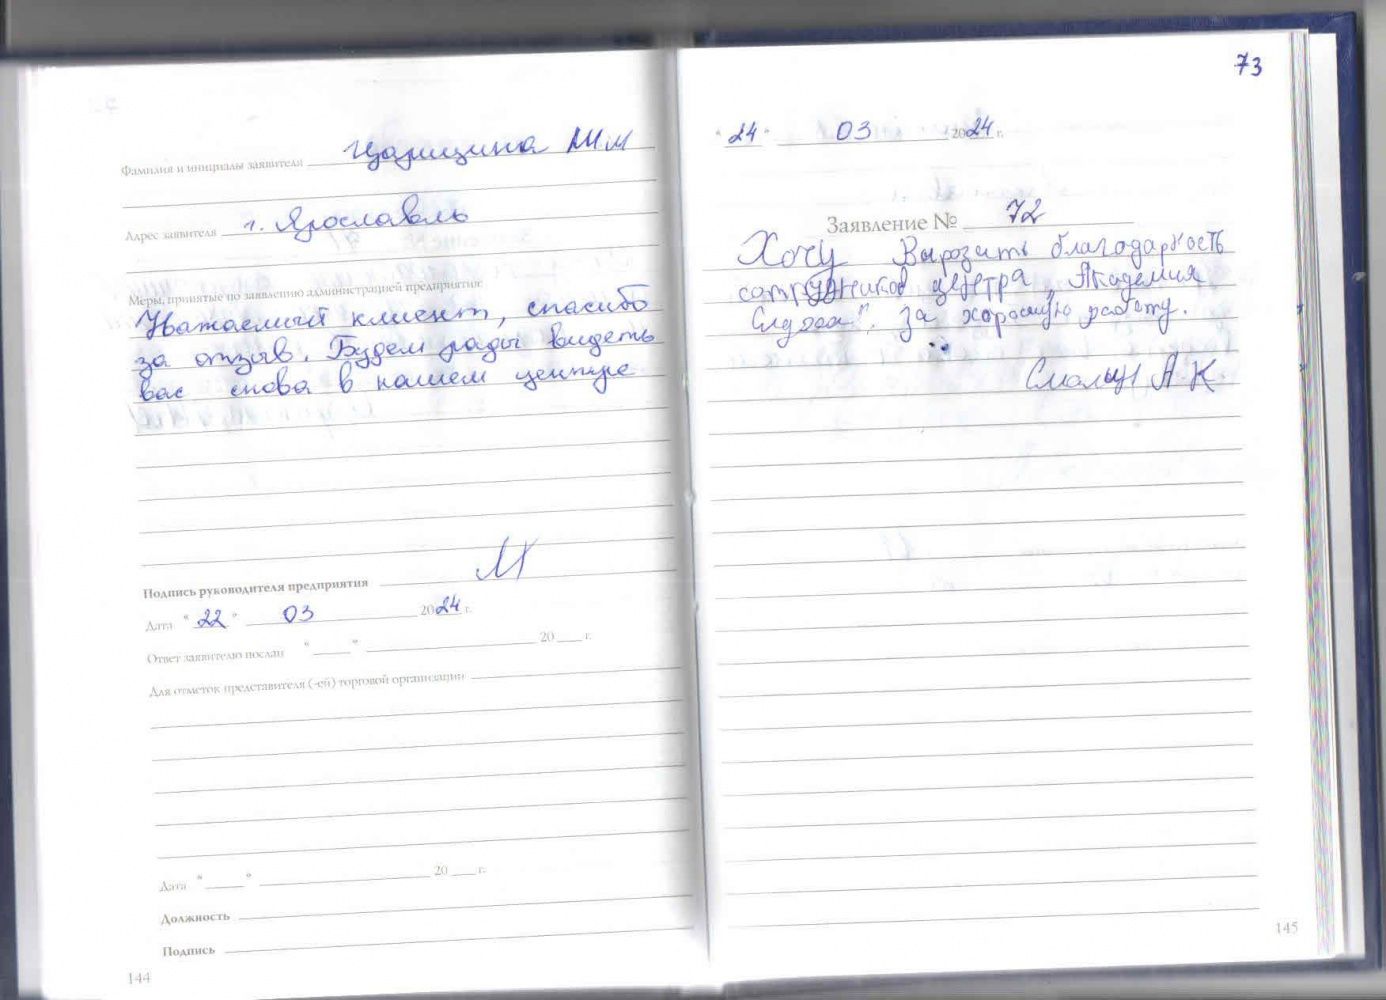 Фамилия и инициалы заявителя Царицина М М
Адрес заявителя г. Ярославль
Меры, принятые по заявлению администрацией предприятия:
Уважаемый клиент, спасибо
за отзыв. Будем рады видеть
вас снова в нашем центре
Подпись руководителя предприятия
Дата "22" 03 2024 г.
Ответ заявителю послан "____" ____ 20___ г.
Для отметок представителя (-ей) торговой организации
Дата "____" ____ 20___ г.
Должность
Подпись
144
73
"24" 03 2024 г.
Заявление № 72
Хочу Вырозить благодарность
сотрудников центра "Академия
Слуха". За хорошую работу.
А.К.
145